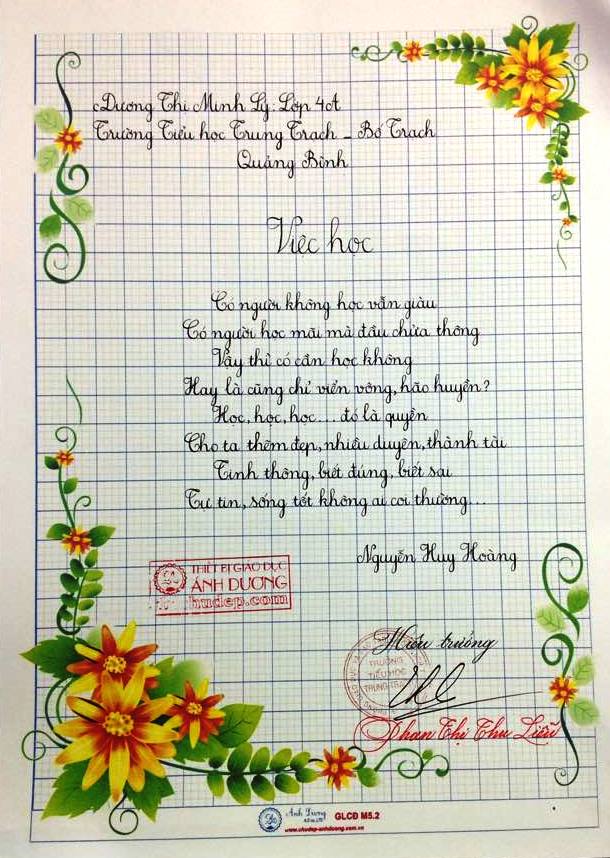 Dương Thị Minh Lý: Lớp 4A
Trường Tiểu học Trung Trạch - Bố Trạch
Quảng Bình
Việc học
Có người không học vẫn giàu
Có người học mãi mà đầu chửa thông
Vậy thì có cần học không
Hay là cũng chỉ viển vông, hão huyền?
Học, học, học... đó là quyền
Cho ta thêm đẹp, nhiều duyên, thành tài
Tinh thông, biết đúng, biết sai
Tự tin, sống tốt không ai coi thường...
Nguyễn Huy Hoàng
THIẾT BỊ GIÁO DỤC
ÁNH DƯƠNG
hudep.com
Hiệu trưởng
TRƯỜNG
TIỂU HỌC
TRUNG TRẠCH
Phan Thị Thu Liễu
Ánh Dương
GLCĐ M5.2
www.chudep-anhduong.com.vn